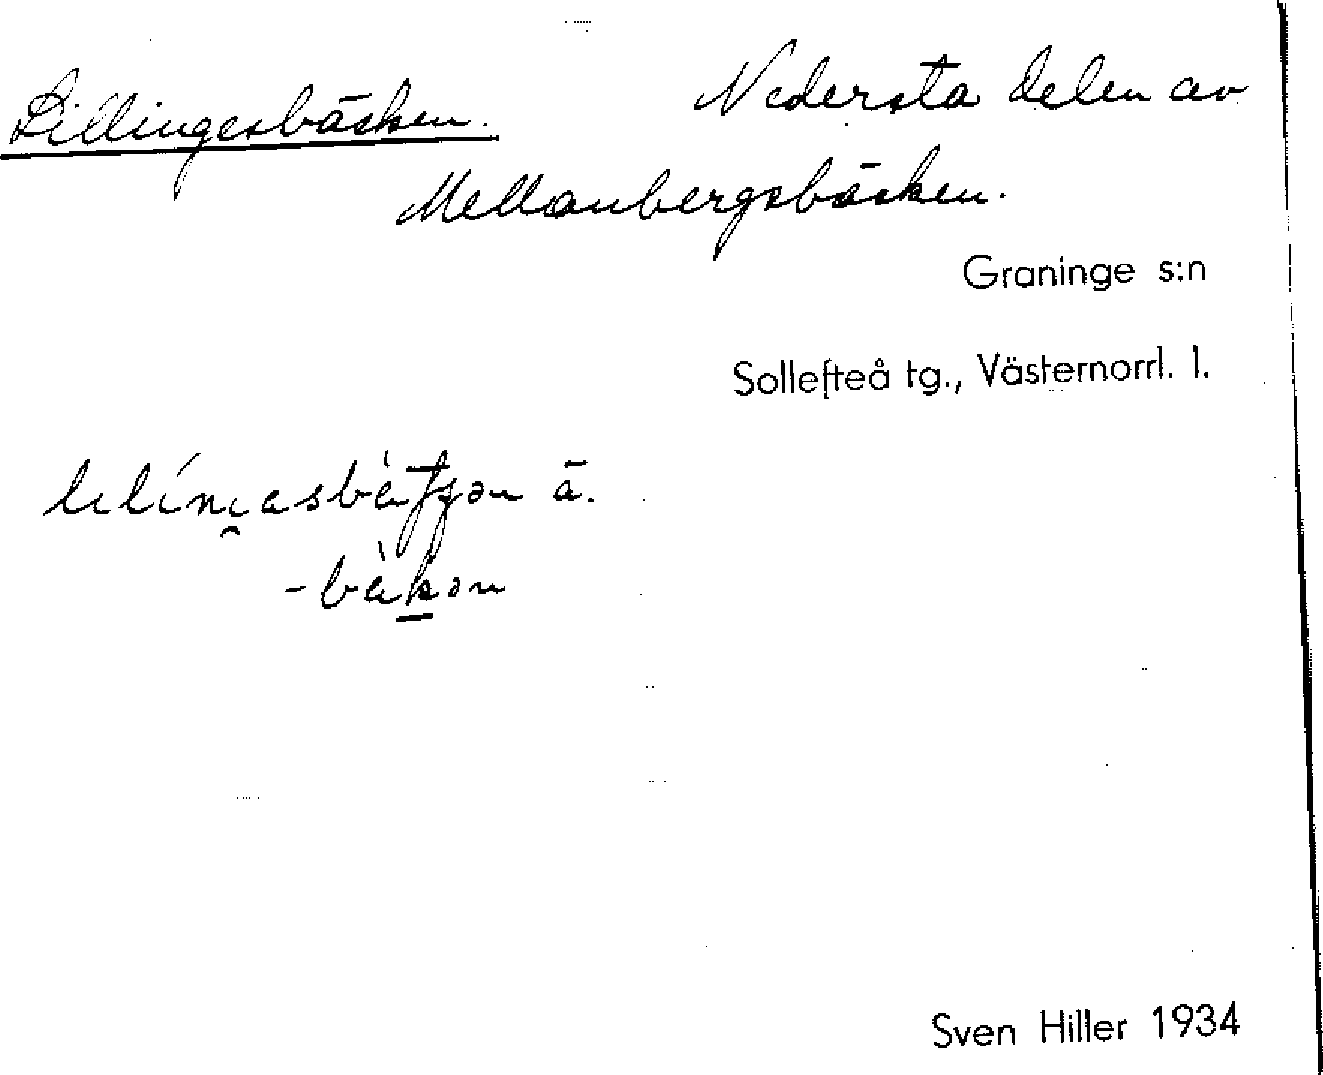 Lillingesbäcken. Nedersta delen av
Mellanbergsbäcken.
Graninge s:n
Sollefteå tg., Västernorrl. l.
ä.
Sven Hiller 1934